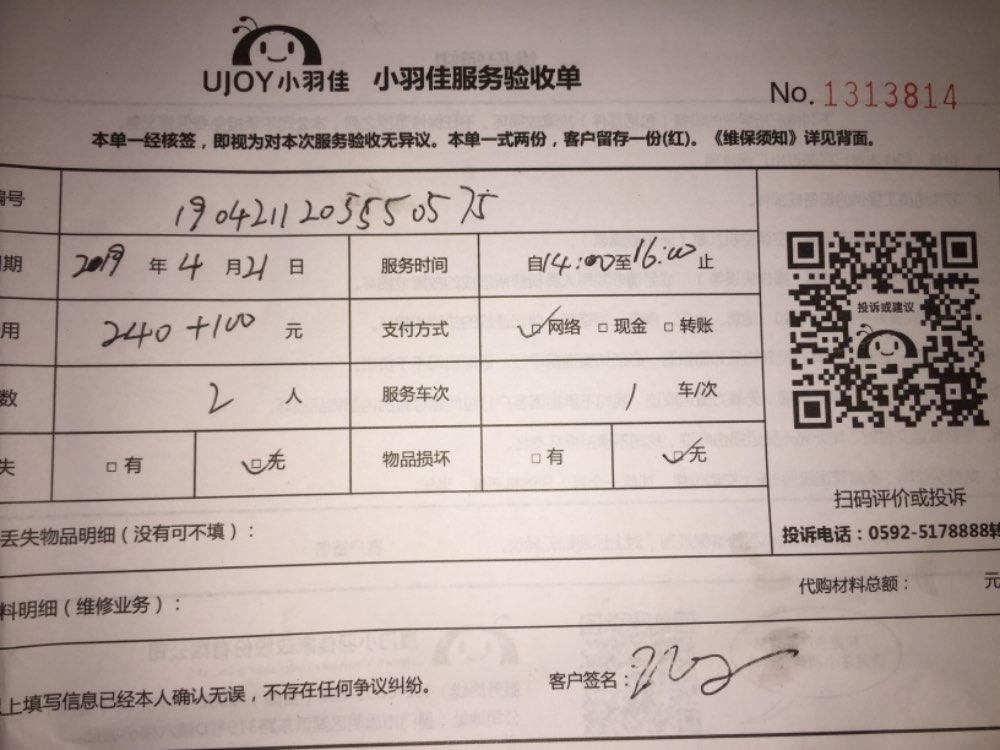 UJOY小羽佳 小羽佳服务验收单
No. 1313814
本单一经核签，即视为对本次服务验收无异议。本单一式两份，客户留存一份(红)。《维保须知》详见背面。
编号 19042112055505 75
期 2019 年 4 月 21 日 服务时间 自14:00至16:00止
用 240+100 元 支付方式 ☑网络 □现金 □转账
数 2 人 服务车次 1 车/次
失 □有 ☑无 物品损坏 □有 ☑无
投诉或建议
扫码评价或投诉
投诉电话：0592-5178888转
丢失物品明细（没有可不填）：
料明细（维修业务）： 代购材料总额： 元
上填写信息已经本人确认无误，不存在任何争议纠纷。 客户签名：